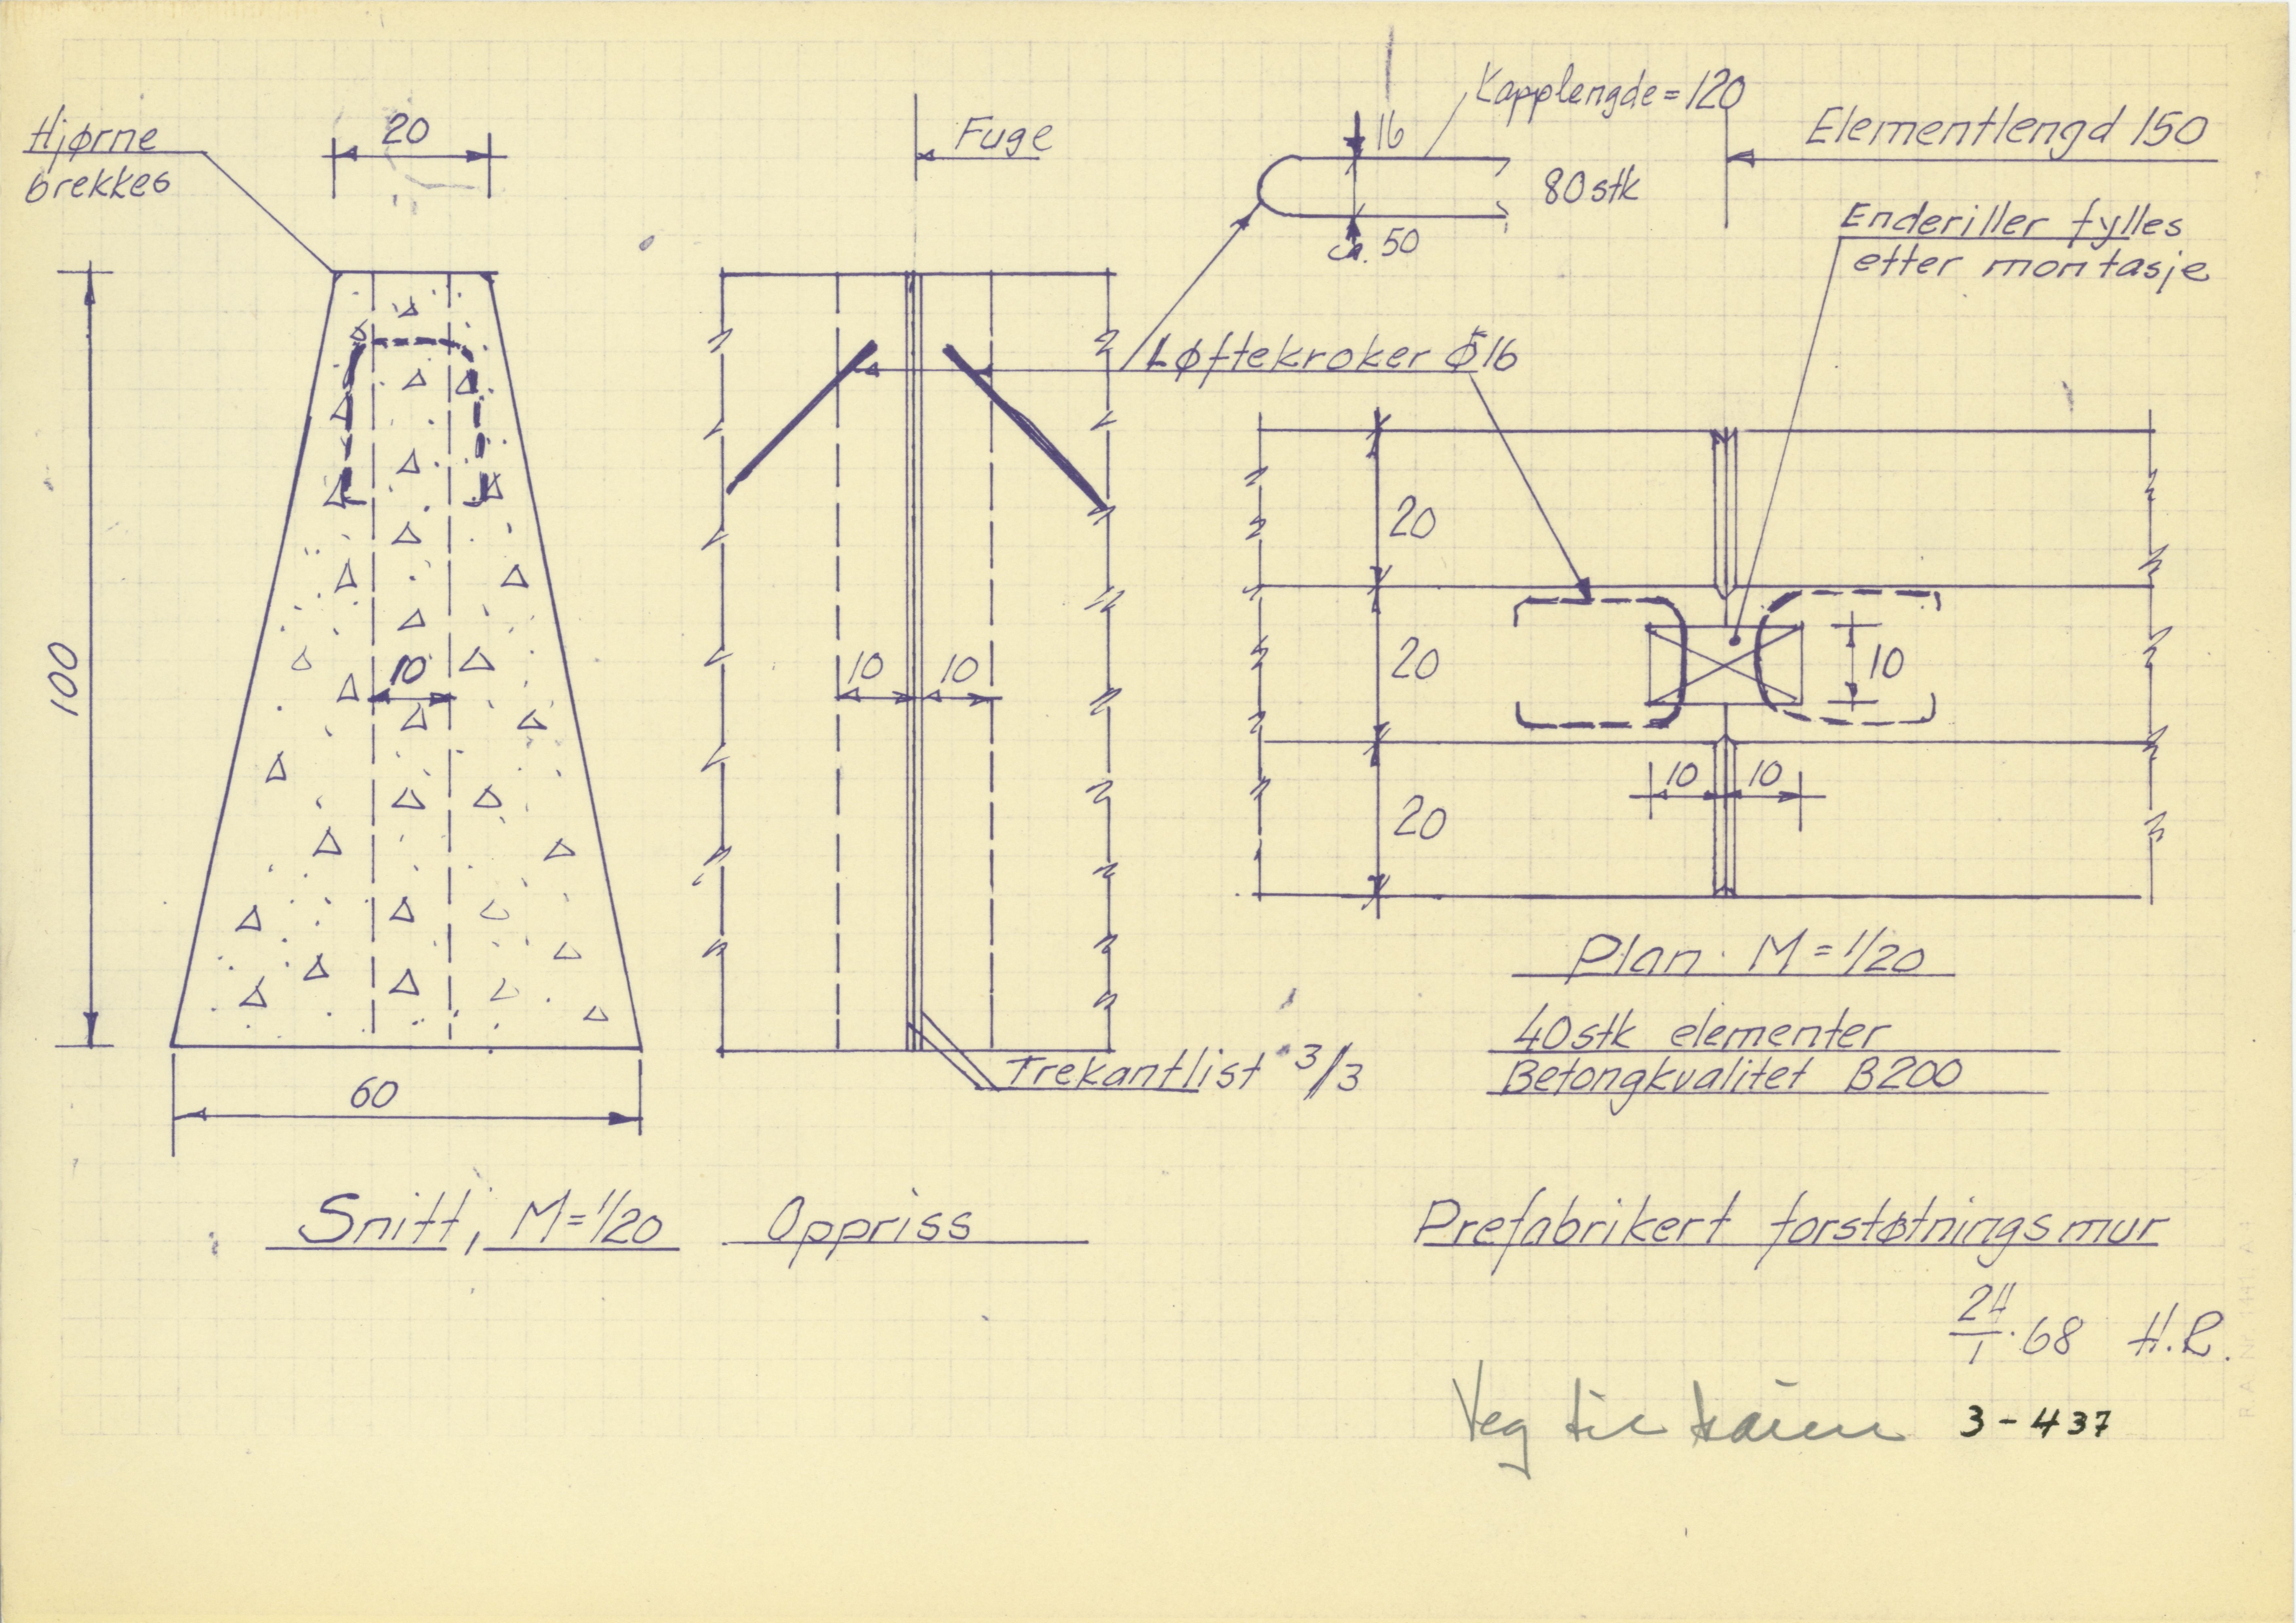 Hjørne
brekkes
20
Fuge
16
Kapplengde = 120
80 stk
ca. 50
Elementlengd 150
Enderiller fylles
etter montasje
Løftekroker Ø16
100
10
60
10
10
20
20
20
10
10
10
Trekantlist 3/3
Plan. M = 1/20
40 stk elementer
Betongkvalitet B200
Snitt, M = 1/20
Oppriss
Prefabrikert forstøtningsmur
24/1.68 H.R.
Veg til
3-437